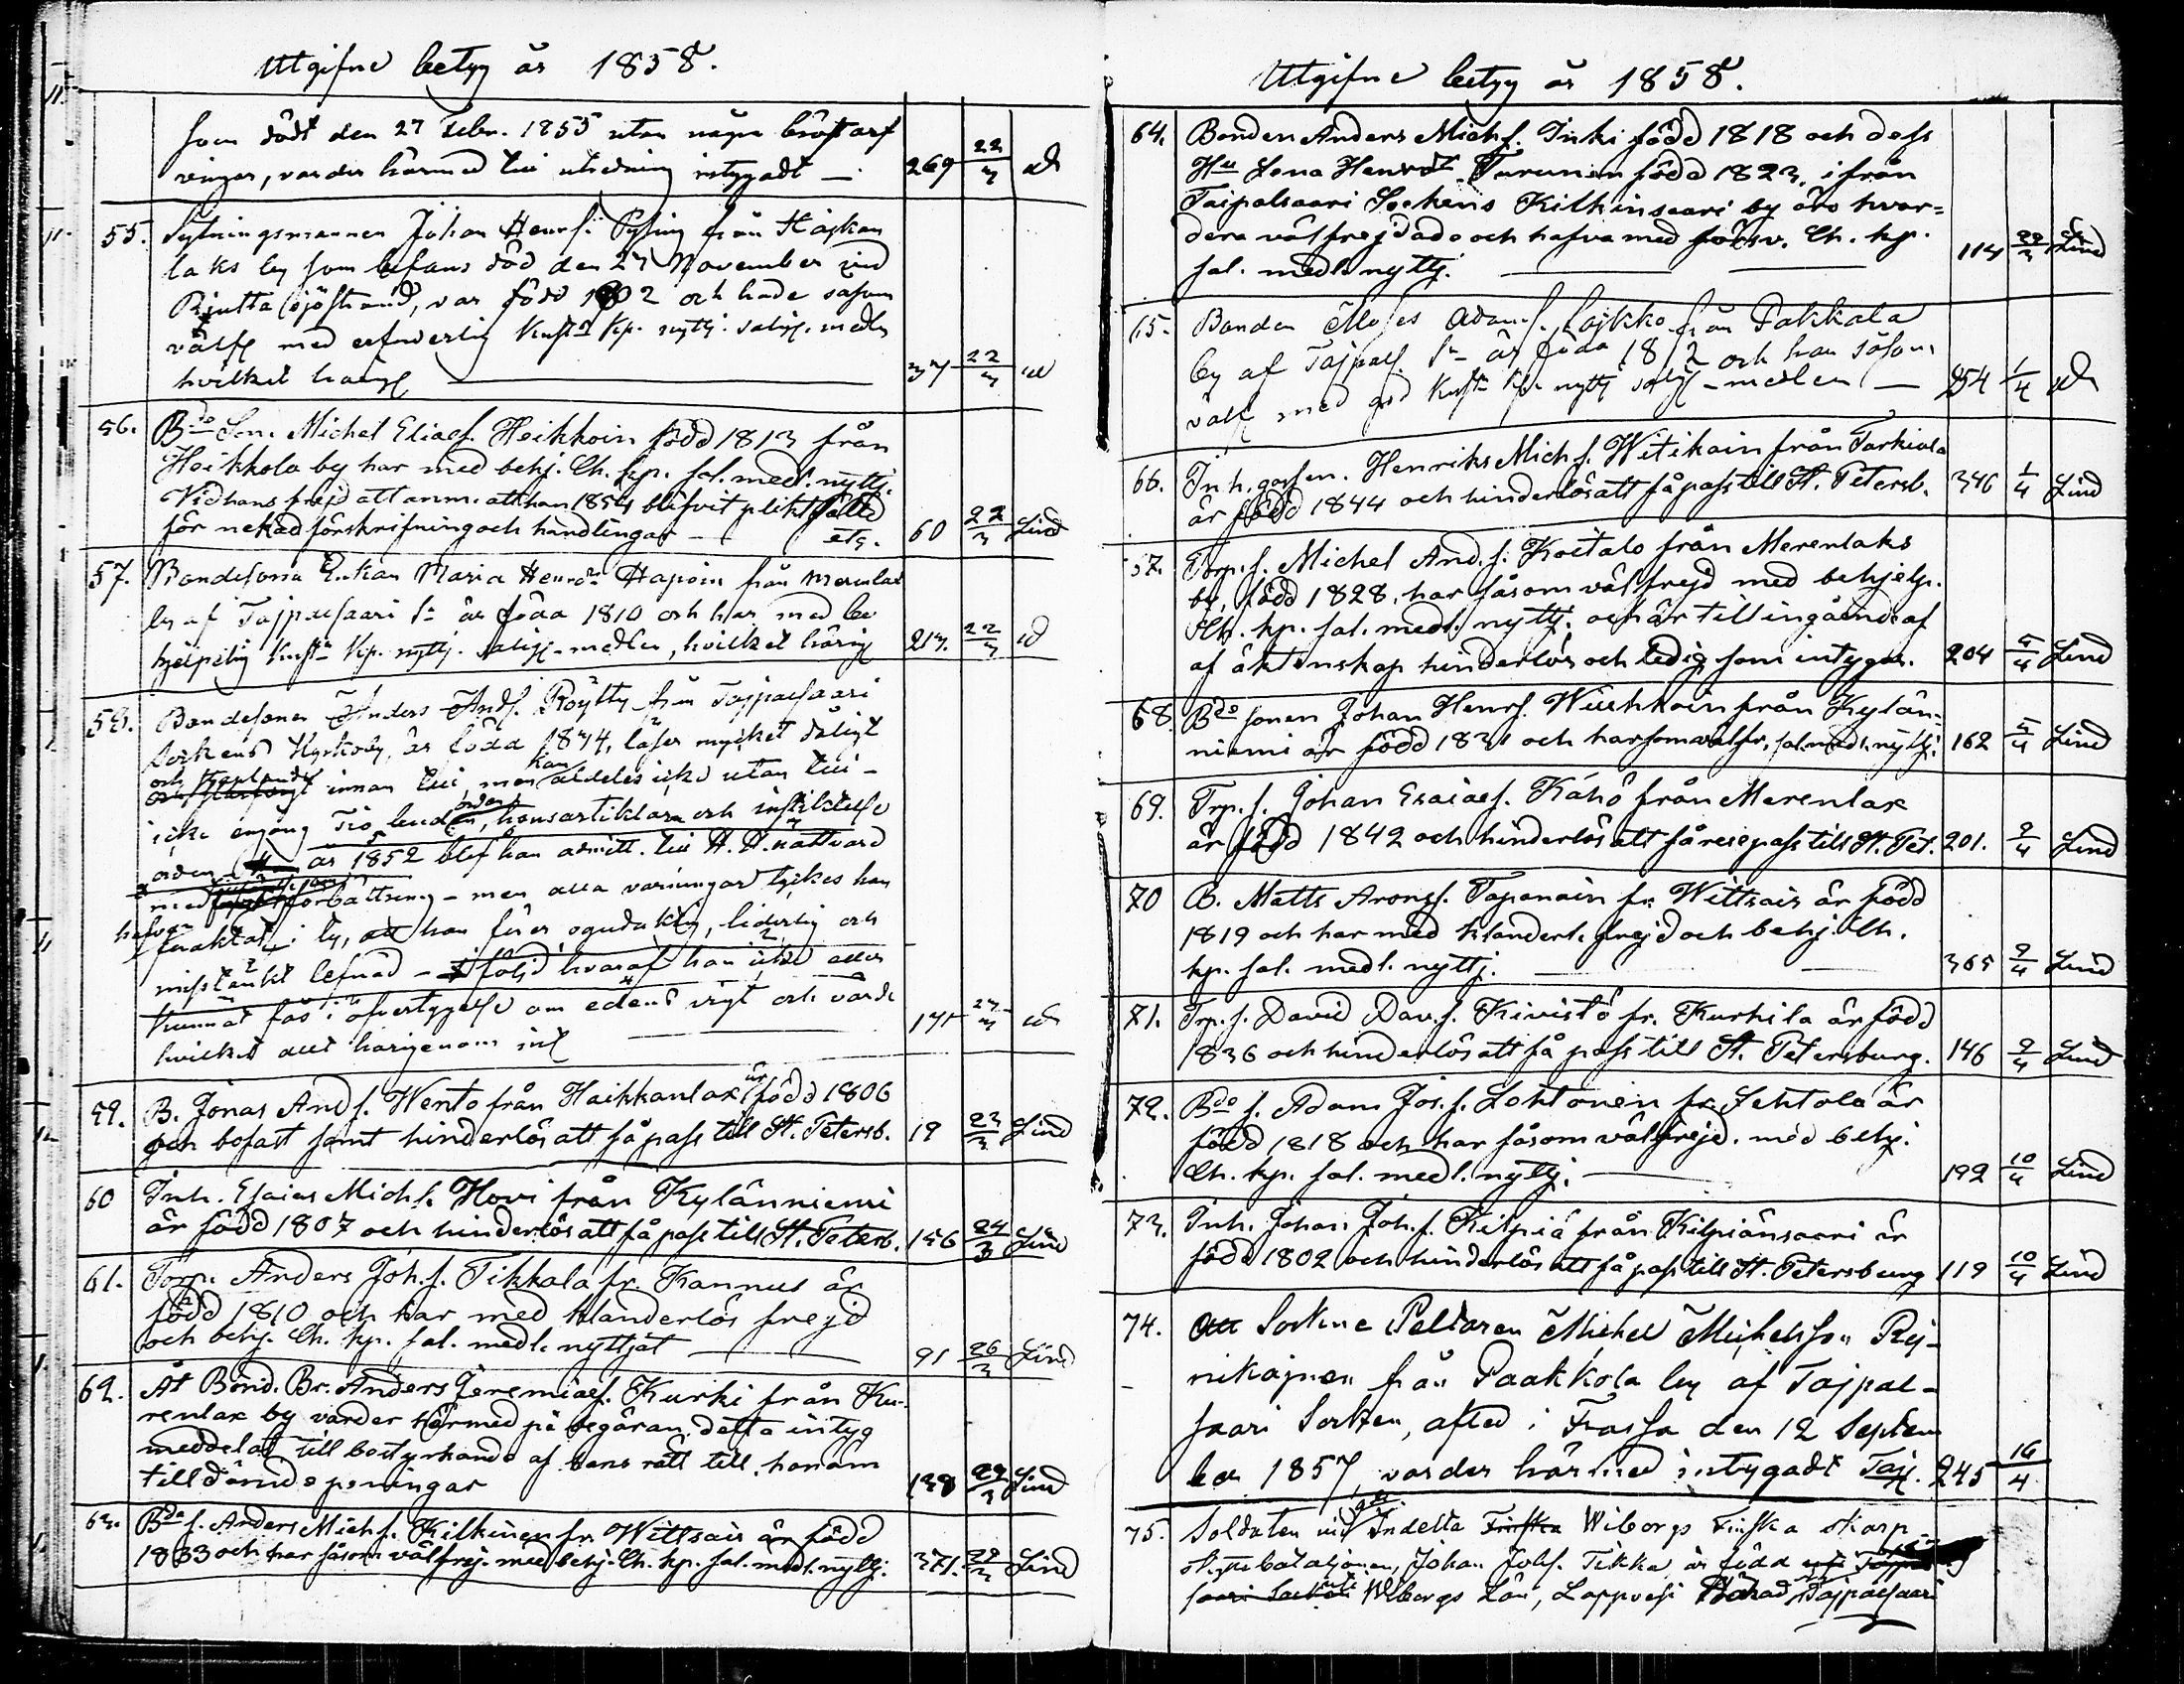 Utgifne betyg år 1858.
som dödt den 27 Febr. 1855 utan några bröstarf
vingar, varder härmed till utredning intygadt — 269 22/3
55. Sytningsmannen Johan Henrs. från
laks by som befans död den 27 November vid
sjöstrand, var född 1802 och hade såsom
välfr. med erforderlig Kristl. Kp. nyttj. salig. medlen
hvilket härig. 37 22/3
56. Bde Son. Michel Eliaes. Heikkoin född 1813 från
Heikkola by har med behj. Ch. kp. sal. medl. nyttj.
Vid hans frejd att anm. att han 1854 blifvit pliktfälld
för nekad förskrifning och handlingar — etc. 60 22/3 Lind
57. Bondesona Enkan Maria Henrdr Hapoin från Merenlax
by af Tajpalsaari Sn är född 1810 och har med be
hjelpelig Kristn Kp. nyttj. salig. medlen, hvilket härig. 213. 22/3
58. Bondesonen Anders Ands. Röytty från Tajpalsaari
Sockens Kyrkoby, är född 1834, läser mycket dåligt
och innan till, men kan aldeles icke utan till —
icke engång Tio buden, trosartiklarna och instiktelse
orden år 1852 blef han admitt. till H. H. nattvard
med förbättring — men alla varningar tyckes han
hafva föraktat i by, att han förer ogudaktig, liderlig och
misstänkt lefnad — i följd hvaraf han icke eller
kunnat fås i öfvertygelse om edens vigt och värde
hvilket allt härigenom int. 171 27/3
59. B. Jonas And. s. Wento från Haikkanlax är född 1806
och bofast samt hinderlös att få pass till St. Petersb. 19 23/3 Lind
60 Inh. Esaias Mich. s. Hovi från Kylänniemi
är född 1807 och hinderlös att få pass till St. Petersb. 156 24/3 Lind
61. Torp. Anders Joh. s. Tikkala fr. Kannus är
född 1810 och har med klanderlös frejd
och behj. Ch. kp. sal. medl. nyttjat — 91 26/3 Lind
62. At Bond. Br. Anders Jeremiaes. Kurki från Ku-
renlax by varder härmed på begäran detta intyg
meddelat till bestyrkande af hans rätt till honom
tilldömde peningar 138 29/3 Lind
63. Bde s. Anders Mich s. Kilkinen fr. Wittsais är född
1833 och har såsom välfrej. med behj. Ch. kp. sal. medl. nyttj. 371. 29/3 Lind
Utgifne betyg år 1858.
64. Bonden Anders Mich s. Inki född 1818 och dess
Hu Lena Henrdr Turunen född 1823. ifrån
Taipalsaari Sockens Kilkinsaari by äro hvar=
dera välfrejdade och hafva med försv. Ch. kp.
sal. medl. nyttj. — 114 29/3 Lind
65. Bonden Moses Adams. Lajkko från Pakkala
by af Tajpals. Sn är född 1812 och har såsom
välfr. med god Kristn kp. nyttj salig. medlen — 254 1/4
66. Inh. gossen. Henriks Mich s. Witikain från Tarkiala
är född 1844 och hinderlös att få pass till St. Petersb. 346 1/4 Lind
67. Torp. s. Michel And. s. Koetalo från Merenlaks
by, född 1828, har såsom välfrejd med behjelp.
Ch. kp. sal. medl. nyttj. och är till ingående af
af äktenskap hinderlös och ledig som intygas. 204 5/4 Lind
68. Bde sonen Johan Henrs. Wuohkoin från Kylän=
niemi är född 1831 och har som välfr. sal. medl. nyttj. 162 5/4 Lind
69. Trp. s. Johan Esaiaes. Kähö från Merenlax
är född 1842 och hinderlös att få resepass till St. Pet. 201. 9/4 Lind
70 B. Matts Arons s. Tapanain fr. Wittsais är född
1819 och har med klanderl. frejd och behj. Ch.
kp. sal. medl. nyttj. — 365 9/4 Lind
71. Trp. s. David Dav. s. Kivistö fr. Kurhila är född
1836 och hinderlös att få pass till St. Petersburg. 146 9/4 Lind
72. Bde s. Adam Jos. s. Lohtonen fr. Lehtola är
född 1818 och har såsom välfrejd. med behj.
Ch. kp. sal. medl. nyttj. — 192 10/4 Lind
73. Inh. Johan Joh. s. Kilpiä från Kilpiänsaari är
född 1802 och hinderlös att få pass till St. Petersburg 119 10/4 Lind
74. Att Sockne Michel Michelsson
från Paakkola by af Tajpal-
saari Socken, afled i den 12 Septem
ber 1857 varder härmed intygadt Taj. 245 16/4
75. Soldaten vid Indelta Finska Wiborgs Finska skarp
bataljonen, Johan Johs. Tikka är född
saari Socken Wiborgs Län, Lappvesi Härad, Tajpalsaari